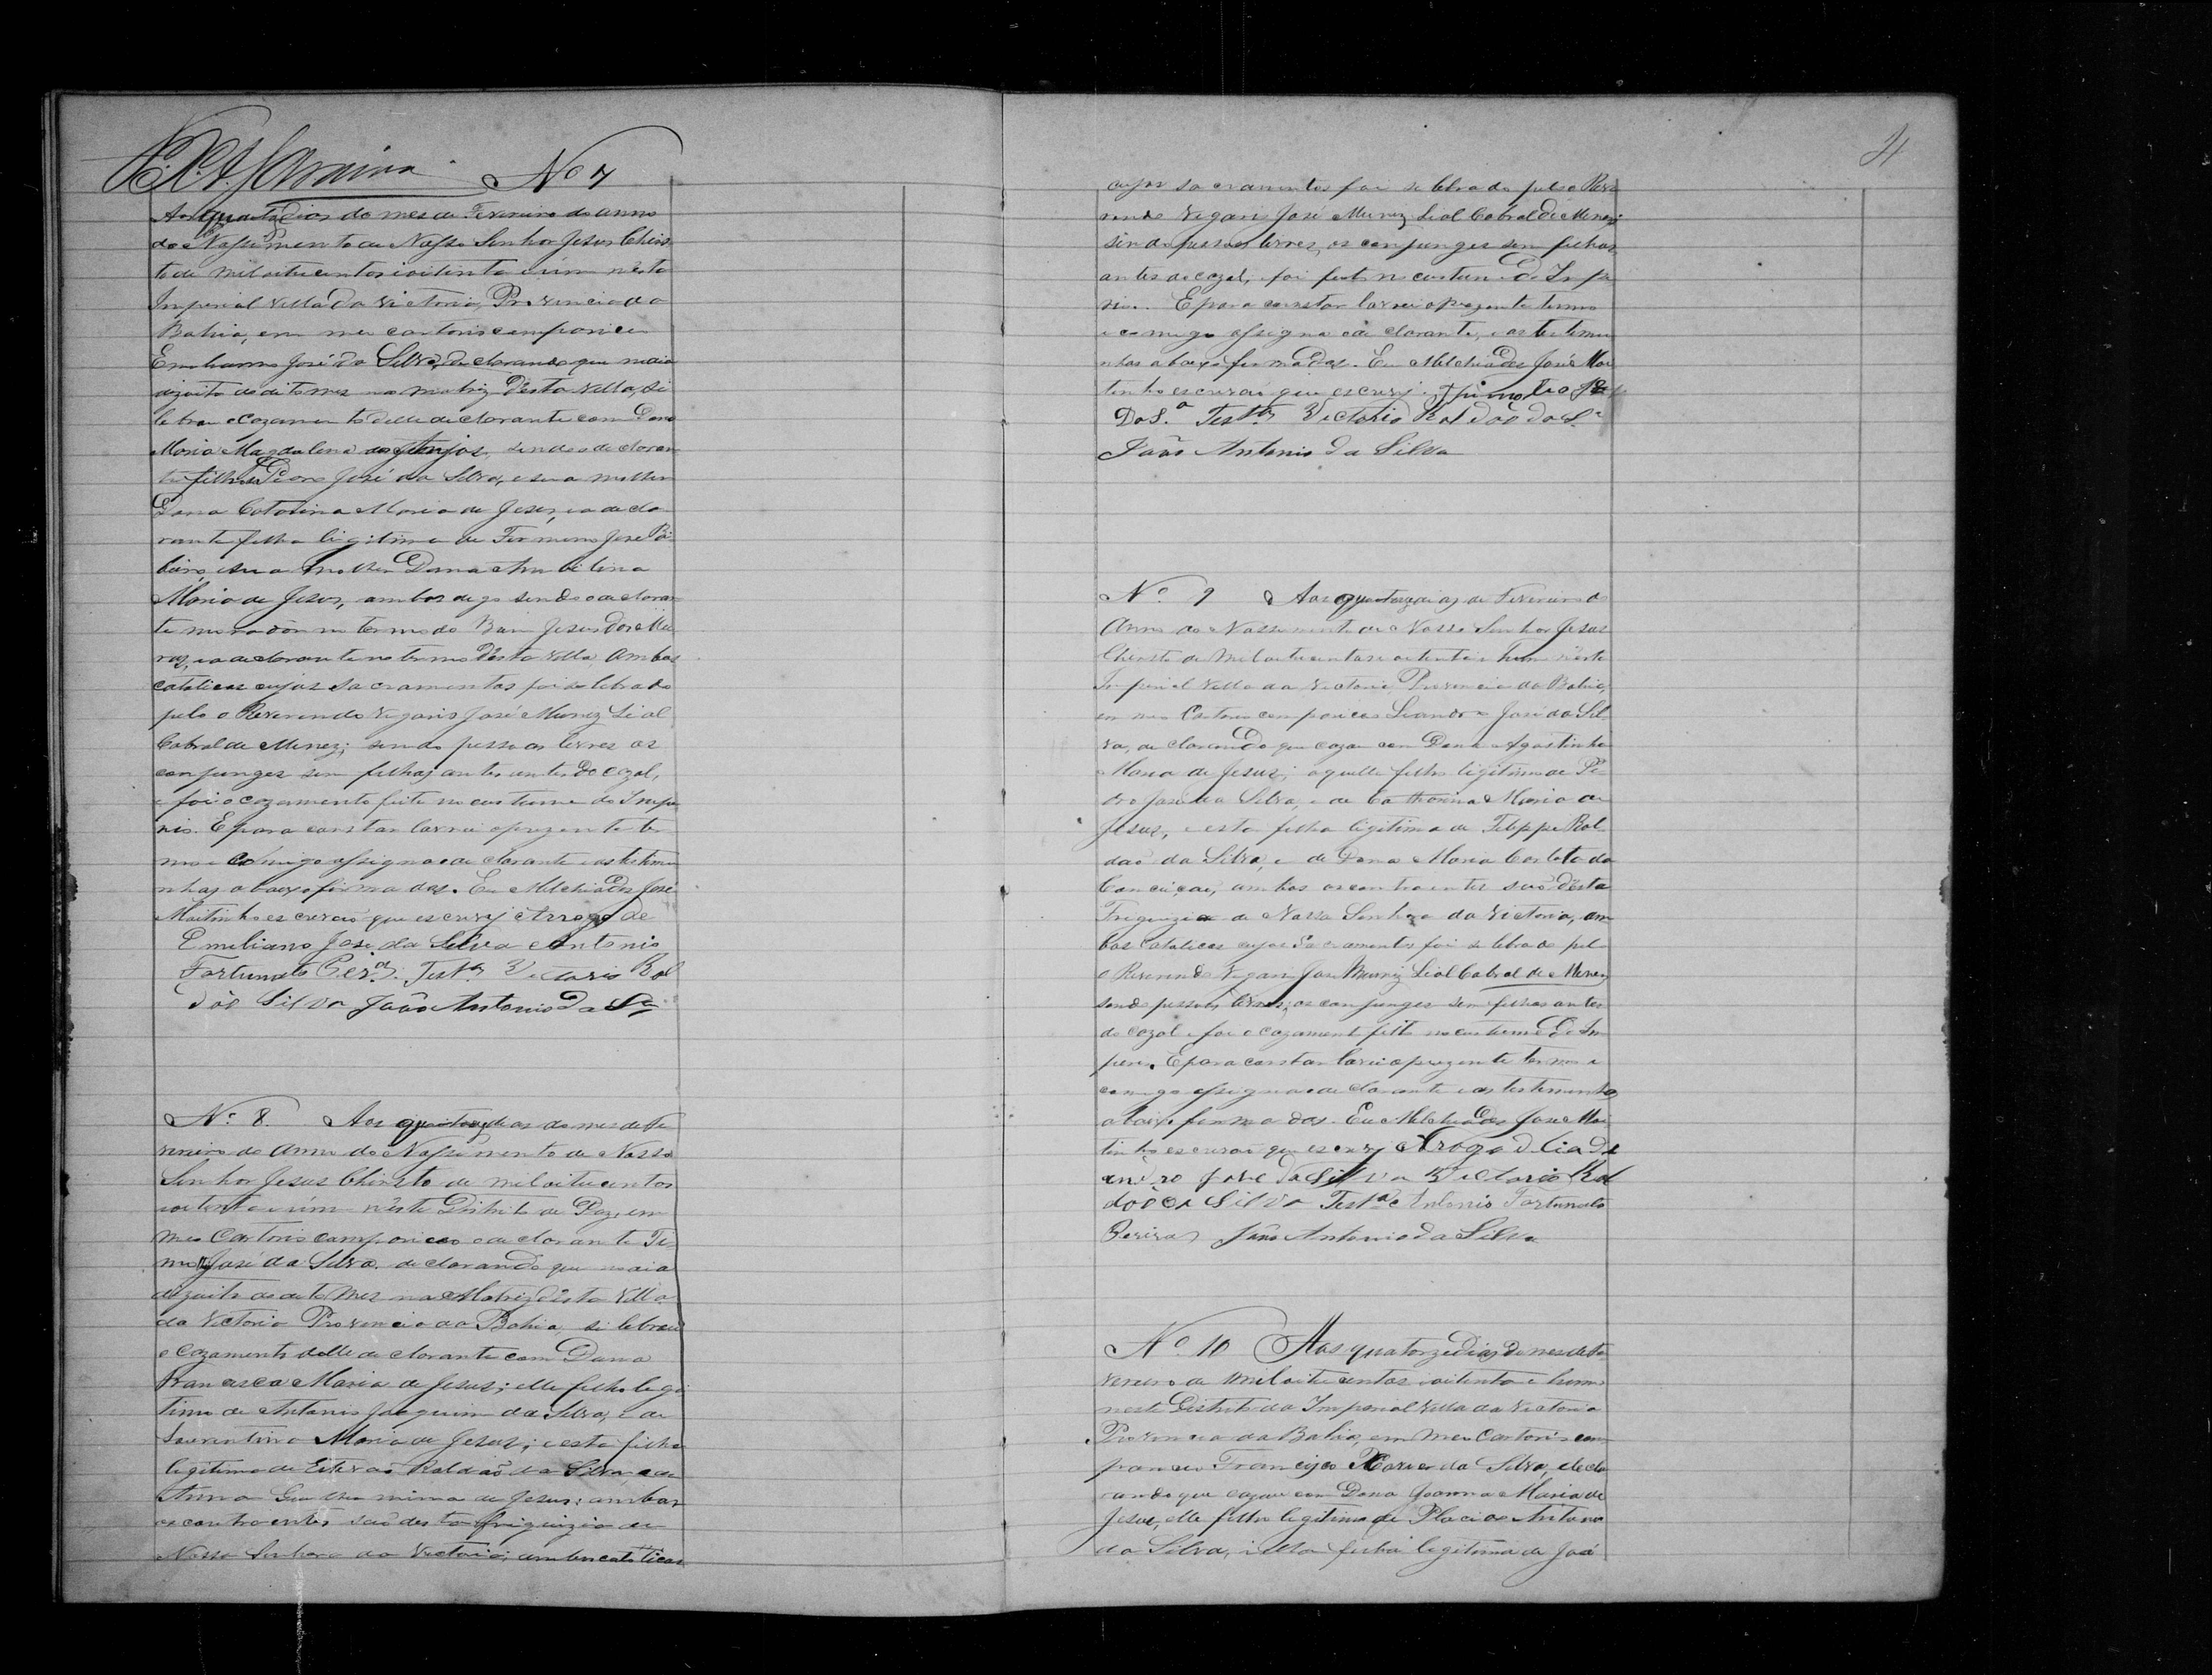 No 7
Aos quatro dias do mes de Fevereiro do anno
do Nassimento de Nosso Senhor Jesus Chris
to de mil oitucentos ioitenta eúm nésta
Imperial Villa da Victoria, Provincia da
Bahia, em meu cartorio compariceu
José da Silva, declarando que no dia
dizoito do dito mez na matriz désta Villa, si
lebrou o Cazamento delle declarante com Dona
Maria Magdalena dos Anjos, sendo o declaran
te filho de Pedro José da Silva, e sua mulher
Dona Catarina Maria de Jesus, e a decla
rante filha ligitima de Firmino José Ri
beiro, e sua mulher Dona
Maria de Jesus, ambos sendo o declaran
te morador no termo do Bom Jesus dos Mei
ras, e a declarante no termo désta Villa, Ambos
catolicos cujos Sacramentos foi selebrado
pelo o Reverendo Vigario José Muniz Lial
Cabral de Minez; sendo pessoas livres os
conjunges sem filhos antes antes do cazal,
e foi o cazamento feito no custume do Impe
rio. E para constar lavrei o prezente ter
mo e comigo assigna o declarante e as testimu
nhas abaixo firmadas. Eu Melchiades José
Moitinho escrivão que escrevy Arrogo de
Emiliano José da Silva Antonio
Fortunato Per.ª. Test.as Victorio Rol
dão Silva João Antonio da Sª
No 8. Aos quatorze dias do mes de Fe
vereiro do Anno do Nassimento de Nosso
Senhor Jesus Christo de mil oitucentos
ioitenta e úm néste Distrito de Paz, em
meu Cartorio compariceo o declarante Ti
José da Silva. declarando que no dia
dizoito do dito Mez na Matriz désta Villa
da Victoria Provincia da Bahia, si lebrou
o Cazamento delle declarante com Dona
Francisca Maria de Jesus; elle filho legi
timo de Antonio Joaquim da Silva, e de
Laurentina Maria de Jesus; e esta filha
legitima de Estevão Roldão da Silva, e de
Anna Guilhermina de Jesus: ambos
os contraentes são desta friguizia de
Nossa Senhora da Victoria; ambos catolicos
cujos sacramentos foi selebrado pelo o Reve
rendo Vigario José Muniz Lial Cabral de Minez;
sendo pessoas livres, os conjunges sem filhos
antes do cazal, e foi feito no custume do Impe
rio. E para constar lavrei o prezente termo
e comigo assigna o declarante, e as testemu
nhas abaixo firmadas. Eu Melchiades José Moi
tinho escrivão que escrevy. Timotio José
Da S.ª Test.as Victorio Roldão da S.ª
João Antonio da Silva
No. 9 Aos quatorze dias de Fevereiro do
Anno do Nassimento de Nosso Senhor Jesus
Christo de Mil oitucentos e oitenta e hum nésta
Imperial Villa da Victoria Provincia da Bahia,
em meu Cartorio compariceo Leandro José da Sil
va, declarando que cazou com Dona Agostinha
Maria de Jesus; aquelle filho ligitimo de Pe
dro José da Silva, e de Catharina Maria de
Jesus, e esta filha ligitima de Filippe Rol
dão da Silva, e de Dona Maria Carlota da
Conceição, ambos os contraentes são désta
Friguizia de Nossa Senhora da Victoria, am
bos Catolicos cujos Sacramentos foi selebrado pel
o Reverendo Vigario José Muniz Lial Cabral de Minez
sendo pessoas livres; os conjunges sem filhos antes
do cazal e foi o cazamento feito no custume do Im
perio. E para constar lavrei o prezente termo e
comigo assigna o declarante e as testemunhas
abaixo firmadas. Eu Melchiades José Moi
tinho escrivão que escrevy Arogo d Liade
andro José da Silva Victorio Rol
dão da Silva Test.as Antonio Fortunato
Pereira João Antonio da Silva
No. 10 Aos quatorze dias do mes de Fe
vereiro de mil oitucentos ioitenta e hum
neste Distrito da Imperial Villa da Victoria
Provincia da Bahia, em meu Cartorio com
pariceo Francisco Xavier da Silva, decla
rando que cazou com Dona Joanna Maria de
Jesus, elle filho legitimo de Placido Antonio
da Silva, i ella filha legitima de Joã